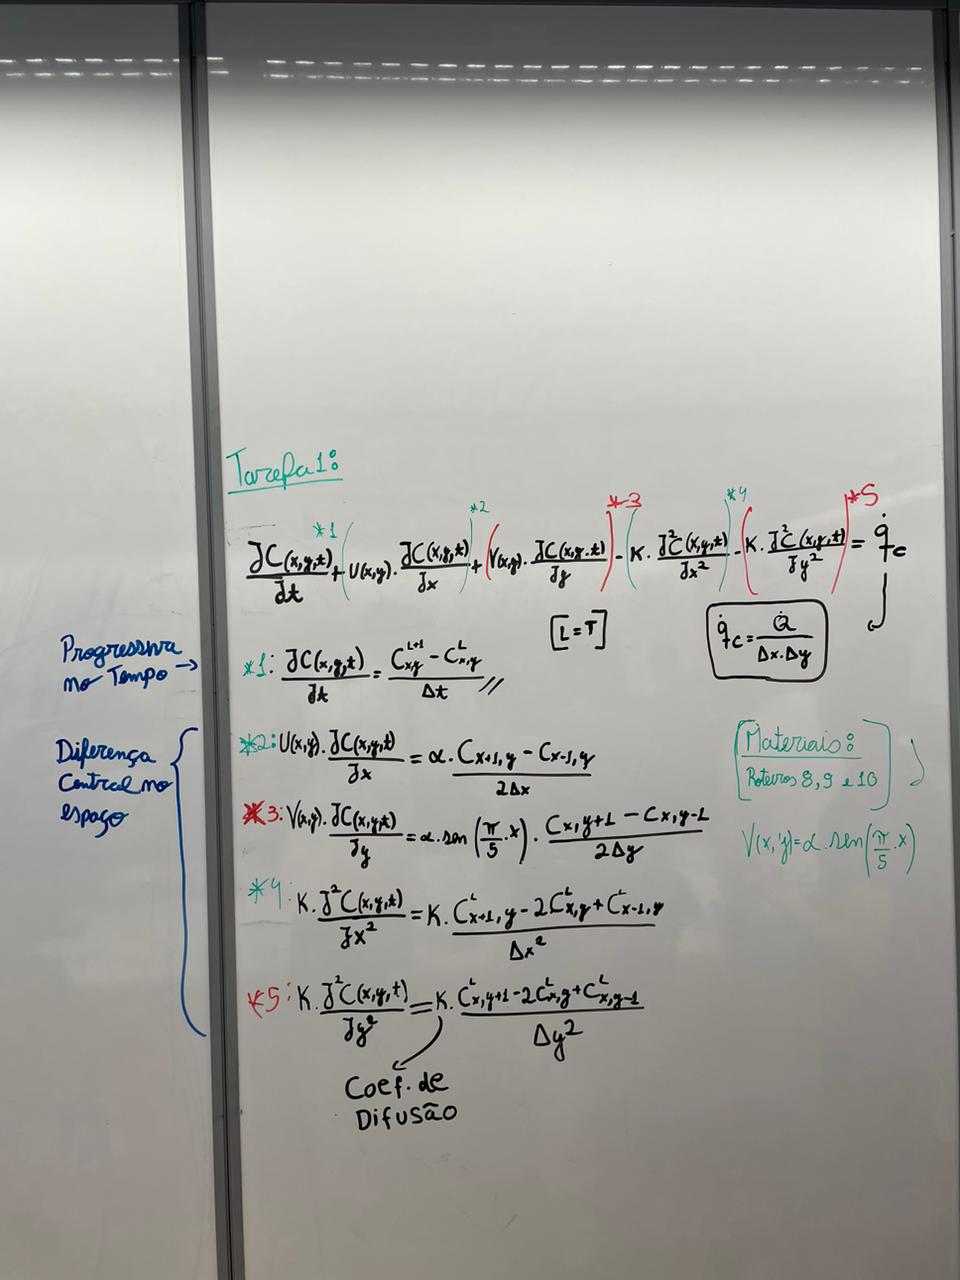 Tarefa 1:
*1 *2 *3 *4 *5
∂C(x,y,t)/∂t + (U(x,y).∂C(x,y,t)/∂x) + (V(x,y).∂C(x,y,t)/∂y) - (K.∂²C(x,y,t)/∂x²) - (K.∂²C(x,y,t)/∂y²) = q̇c
[L=T]
q̇c = Q̇/Δx.Δy
Progressiva
no Tempo →
*1: ∂C(x,y,t)/∂t = C^{L+1}_{x,y} - C^{L}_{x,y}/Δt //
Diferença
Central no
espaço
*2: U(x,y).∂C(x,y,t)/∂x = α.Cx+1,y - Cx-1,y/2Δx
*3: V(x,y).∂C(x,y,t)/∂y = α.sen(π/5.x).Cx,y+1 - Cx,y-1/2Δy
*4: K.∂²C(x,y,t)/∂x² = K.C^{L}_{x+1,y} - 2C^{L}_{x,y} + C^{L}_{x-1,y}/Δx²
*5: K.∂²C(x,y,t)/∂y² = K.C^{L}_{x,y+1} - 2C^{L}_{x,y} + C^{L}_{x,y-1}/Δy²
Coef. de
Difusão
Materiais:
Roteiros 8, 9 e 10
V(x,y)=α.sen(π/5.x)